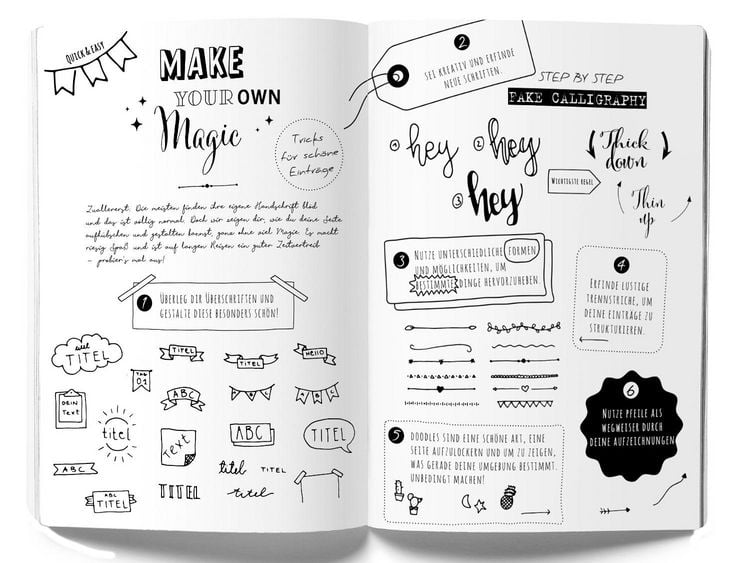 QUICK & EASY
MAKE
YOUR OWN
Magic
Tricks
für schöne
Einträge
Zuallererst: Die meisten finden ihre eigene Handschrift blöd
und das ist völlig normal. Doch wir zeigen dir, wie du deine Seite
aufhübschen und gestalten kannst, ganz ohne viel Magie. Es macht
riesig Spaß und ist auf langen Reisen ein guter Zeitvertreib
– probier's mal aus!
1
ÜBERLEG DIR ÜBERSCHRIFTEN UND
GESTALTE DIESE BESONDERS SCHÖN!
TITEL
TITEL
TITEL
Hello
TAG
01
DEIN
Text
ABC
ABC
titel
Text
ABC
TITEL
ABC
titel
TITEL
ABC
TITEL
TITEL
titel
2
SEI KREATIV UND ERFINDE
NEUE SCHRIFTEN.
STEP BY STEP
FAKE CALLIGRAPHY
1 hey
2 hey
3 hey
WICHTIGSTE REGEL
Thick
down
Thin
up
3
NUTZE UNTERSCHIEDLICHE FORMEN
UND MÖGLICHKEITEN, UM
BESTIMMTE DINGE HERVORZUHEBEN.
4
ERFINDE LUSTIGE
TRENNSTRICHE, UM
DEINE EINTRÄGE ZU
STRUKTURIEREN.
5
DOODLES SIND EINE SCHÖNE ART, EINE
SEITE AUFZULOCKERN UND UM ZU ZEIGEN,
WAS GERADE DEINE UMGEBUNG BESTIMMT.
UNBEDINGT MACHEN!
6
NUTZE PFEILE ALS
WEGWEISER DURCH
DEINE AUFZEICHNUNGEN